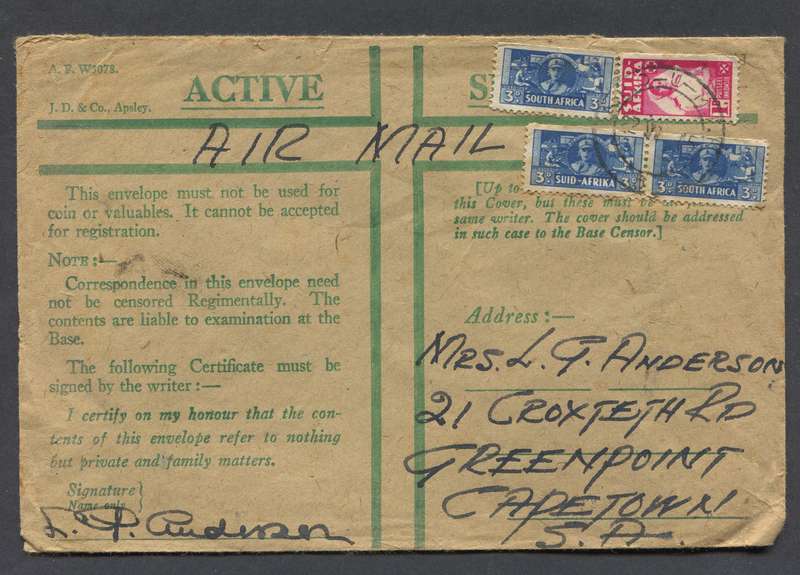 A. F. W3078.
J. D. & Co., Apsley.
ACTIVE
AIR MAIL
3D SOUTH AFRICA 3D
SUID-AFRIKA
3D SUID-AFRIKA 3D
3D SOUTH AFRICA 3D
This envelope must not be used for
coin or valuables. It cannot be accepted
for registration.
NOTE:—
Correspondence in this envelope need
not be censored Regimentally. The
contents are liable to examination at the
Base.
The following Certificate must be
signed by the writer:—
I certify on my honour that the con-
tents of this envelope refer to nothing
but private and family matters.
Signature }
Name only
L. G. Anderson
[Up to
this Cover, but these must be
same writer. The cover should be addressed
in such case to the Base Censor.]
Address:—
MRS. L. G. ANDERSON
21 CROXTETH RD
GREENPOINT
CAPETOWN
S. A.